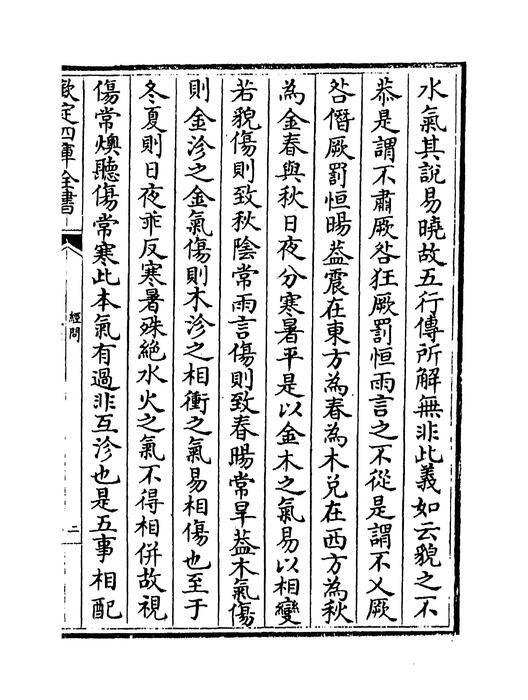 水氣其說易曉故五行傳所解無非此義如云貌之不
恭是謂不肅厥咎狂厥罰恒雨言之不從是謂不乂厥
咎僭厥罰恒暘葢震在東方為春為木兑在西方為秋
為金春與秋日夜分寒暑平是以金木之氣易以相變
若貌傷則致秋陰常雨言傷則致春暘常旱葢木氣傷
則金沴之金氣傷則木沴之相衝之氣易相傷也至于
冬夏則日夜乖反寒暑殊絶水火之氣不得相併故視
傷常燠聽傷常寒此本氣有過非互沴也是五事相配
欽定四庫全書
經問
二